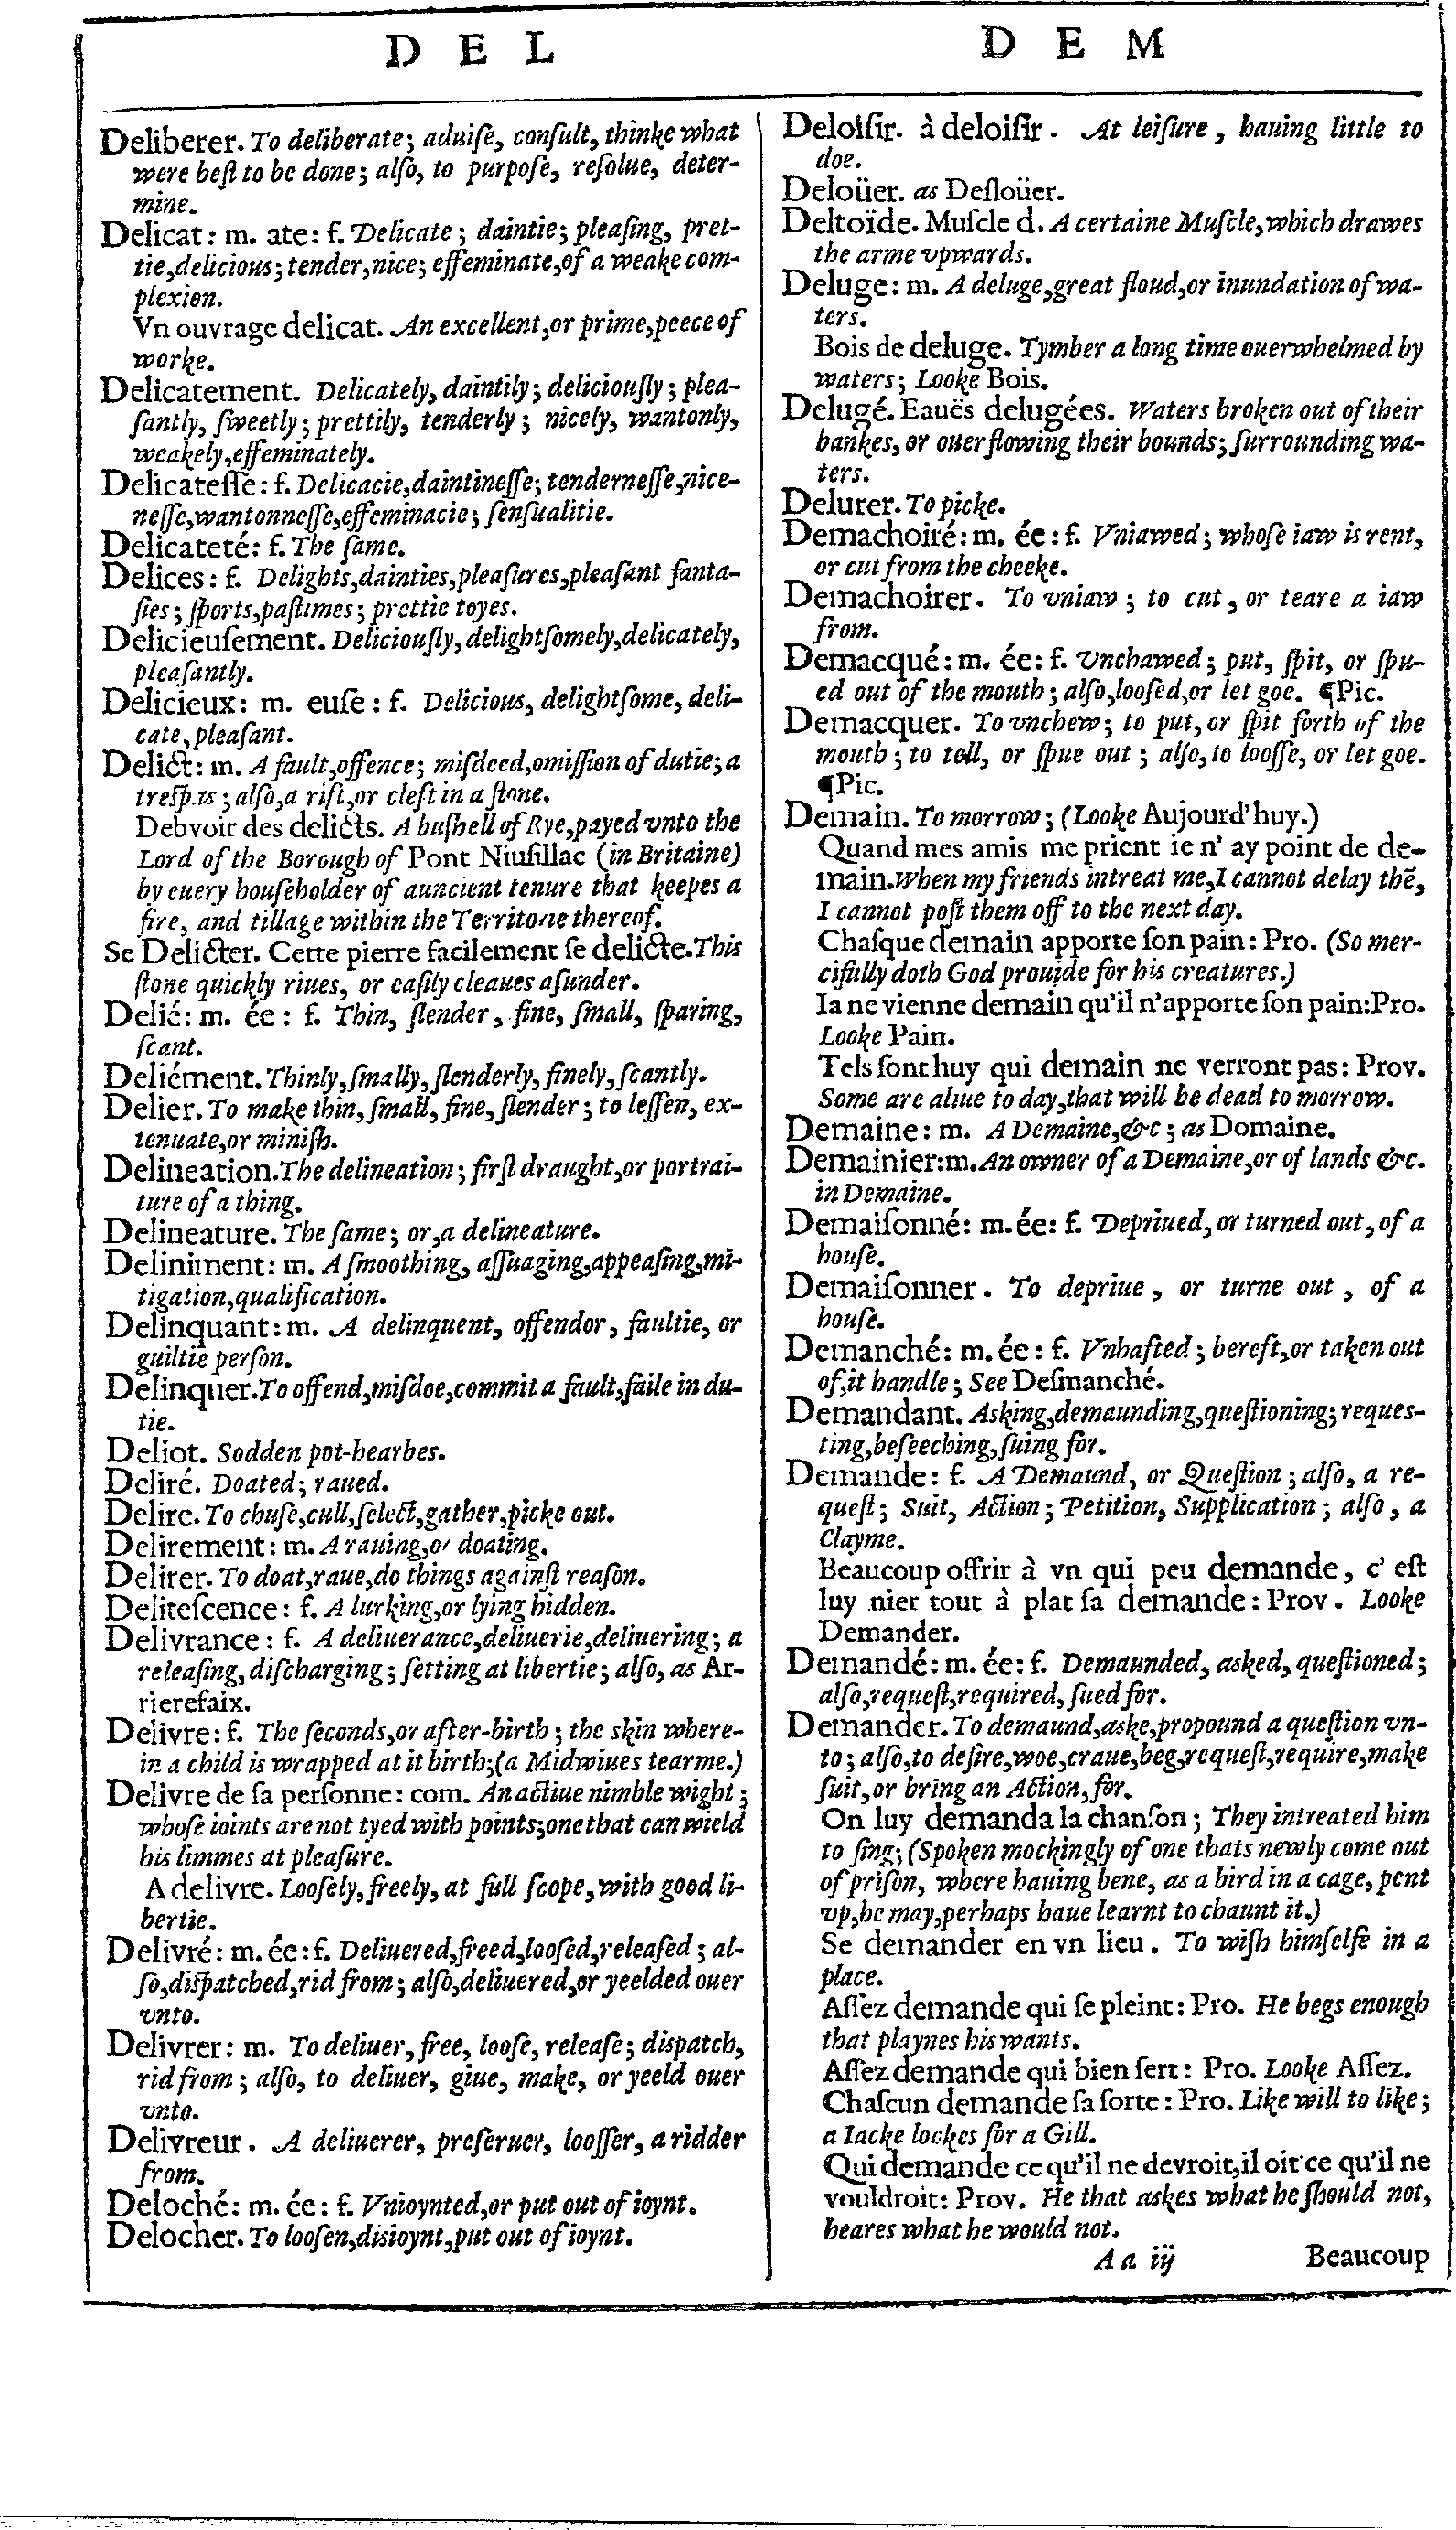 D E L
Deliberer. To deliberate; aduiſe, conſult, thinke what
were beſt to be done; alſo, to purpoſe, reſolue, deter-
mine.
Delicat: m. ate: f. Delicate; daintie; pleaſing, pret-
tie,delicious; tender,nice; effeminate,of a weake com-
plexion.
Vn ouvrage delicat. An excellent,or prime,peece of
worke.
Delicatement. Delicately, daintily; deliciouſly; plea-
ſantly, ſweetly; prettily, tenderly; nicely, wantonly,
weakely,effeminately.
Delicateſſe: f. Delicacie,daintineſſe; tenderneſſe,nice-
neſſe,wantonneſſe,effeminacie; ſenſualitie.
Delicateté: f. The ſame.
Delices: f. Delights,dainties,pleaſures,pleaſant fanta-
ſies; ſports,paſtimes; prettie toyes.
Delicieuſement. Deliciouſly, delightſomely,delicately,
pleaſantly.
Delicieux: m. euſe: f. Delicious, delightſome, deli-
cate,pleaſant.
Delict: m. A fault,offence; miſdeed,omiſſion of dutie; a
treſpas; alſo,a rift,or cleft in a ſtone.
Debvoir des delicts. A buſhell of Rye,payed vnto the
Lord of the Borough of Pont Niuſillac (in Britaine)
by euery houſeholder of auncient tenure that keepes a
fire, and tillage within the Territorie thereof.
Se Delicter. Cette pierre facilement ſe delicte. This
ſtone quickly riues, or eaſily cleaues aſunder.
Delié: m. ée: f. Thin, ſlender, fine, ſmall, ſparing,
ſcant.
Deliément. Thinly,ſmally, ſlenderly, finely, ſcantly.
Delier. To make thin, ſmall, fine, ſlender; to leſſen, ex-
tenuate,or miniſh.
Delineation. The delineation; firſt draught,or portrai-
ture of a thing.
Delineature. The ſame; or,a delineature.
Deliniment: m. A ſmoothing, aſſuaging,appeaſing,mi-
tigation,qualification.
Delinquant: m. A delinquent, offendor, faultie, or
guiltie perſon.
Delinquer. To offend,miſdoe,commit a fault,faile in du-
tie.
Deliot. Sodden pot-hearbes.
Deliré. Doated; raued.
Delire. To chuſe,cull,ſelect,gather,picke out.
Delirement: m. A rauing,or doating.
Delirer. To doat,raue,do things againſt reaſon.
Deliteſcence: f. A lurking,or lying hidden.
Delivrance: f. A deliuerance,deliuerie,deliuering; a
releaſing, diſcharging; ſetting at libertie; alſo, as Ar-
rierefaix.
Delivre: f. The ſeconds,or after-birth; the skin where-
in a child is wrapped at it birth;(a Midwiues tearme.)
Delivre de ſa perſonne: com. An actiue nimble wight;
whoſe ioints are not tyed with points;one that can wield
his limmes at pleaſure.
A delivre. Looſely, freely, at full ſcope, with good li-
bertie.
Delivré: m. ée: f. Deliuered,freed,looſed,releaſed; al-
ſo,diſpatched,rid from; alſo,deliuered,or yeelded ouer
vnto.
Delivrer: m. To deliuer, free, looſe, releaſe; dispatch,
rid from; alſo, to deliuer, giue, make, or yeeld ouer
vnto.
Delivreur. A deliuerer, preſeruer, looſſer, a ridder
from.
Deloché: m. ée: f. Vnioynted,or put out of ioynt.
Delocher. To looſen,disioynt,put out of ioynt.
D E M
Deloiſir. à deloiſir. At leiſure, hauing little to
doe.
Deloüer. as Deſloüer.
Deltoïde. Muſcle d. A certaine Muſcle,which drawes
the arme vpwards.
Deluge: m. A deluge,great floud,or inundation of wa-
ters.
Bois de deluge. Tymber a long time ouerwhelmed by
waters; Looke Bois.
Delugé. Eauës delugées. Waters broken out of their
bankes, or ouerflowing their bounds; ſurrounding wa-
ters.
Delurer. To picke.
Demachoiré: m. ée: f. Vniawed; whoſe iaw is rent,
or cut from the cheeke.
Demachoirer. To vniaw; to cut, or teare a iaw
from.
Demacqué: m. ée: f. Vnchawed; put, ſpit, or ſpu-
ed out of the mouth; alſo,looſed,or let goe. ¶Pic.
Demacquer. To vnchew; to put, or ſpit forth of the
mouth; to toll, or ſpue out; alſo, to looſſe, or let goe.
¶Pic.
Demain. To morrow; (Looke Aujourd'huy.)
Quand mes amis me prient ie n' ay point de de-
main. When my friends intreat me,I cannot delay thē,
I cannot poſt them off to the next day.
Chaſque demain apporte ſon pain: Pro. (So mer-
cifully doth God prouide for his creatures.)
Ia ne vienne demain qu'il n'apporte ſon pain:Pro.
Looke Pain.
Tels ſont huy qui demain ne verront pas: Prov.
Some are aliue to day,that will be dead to morrow.
Demaine: m. A Demaine,&c; as Domaine.
Demainier:m. An owner of a Demaine,or of lands &c.
in Demaine.
Demaiſonné: m. ée: f. Depriued, or turned out, of a
houſe.
Demaiſonner. To depriue, or turne out, of a
houſe.
Demanché: m. ée: f. Vnhafted; bereft,or taken out
of,it handle; See Deſmanché.
Demandant. Asking,demaunding,queſtioning; reques-
ting,beſeeching,ſuing for.
Demande: f. A Demaund, or Queſtion; alſo, a re-
queſt; Suit, Action; Petition, Supplication; alſo, a
Clayme.
Beaucoup offrir à vn qui peu demande, c' eſt
luy nier tout à plat ſa demande: Prov. Looke
Demander.
Demandé: m. ée: f. Demaunded, asked, queſtioned;
alſo,requeſt,required, ſued for.
Demander. To demaund,aske,propound a queſtion vn-
to; alſo,to deſire,woe,craue,beg,requeſt,require,make
ſuit,or bring an Action,for.
On luy demanda la chanſon; They intreated him
to ſing; (Spoken mockingly of one thats newly come out
of priſon, where hauing bene, as a bird in a cage, pent
vp,he may,perhaps haue learnt to chaunt it.)
Se demander en vn lieu. To wiſh himſelfe in a
place.
Aſſez demande qui ſe pleint: Pro. He begs enough
that playnes his wants.
Aſſez demande qui bien ſert: Pro. Looke Aſſez.
Chaſcun demande ſa ſorte: Pro. Like will to like;
a Iacke lookes for a Gill.
Qui demande ce qu'il ne devroit,il oit ce qu'il ne
vouldroit: Prov. He that askes what he ſhould not,
heares what he would not.
A a iij Beaucoup